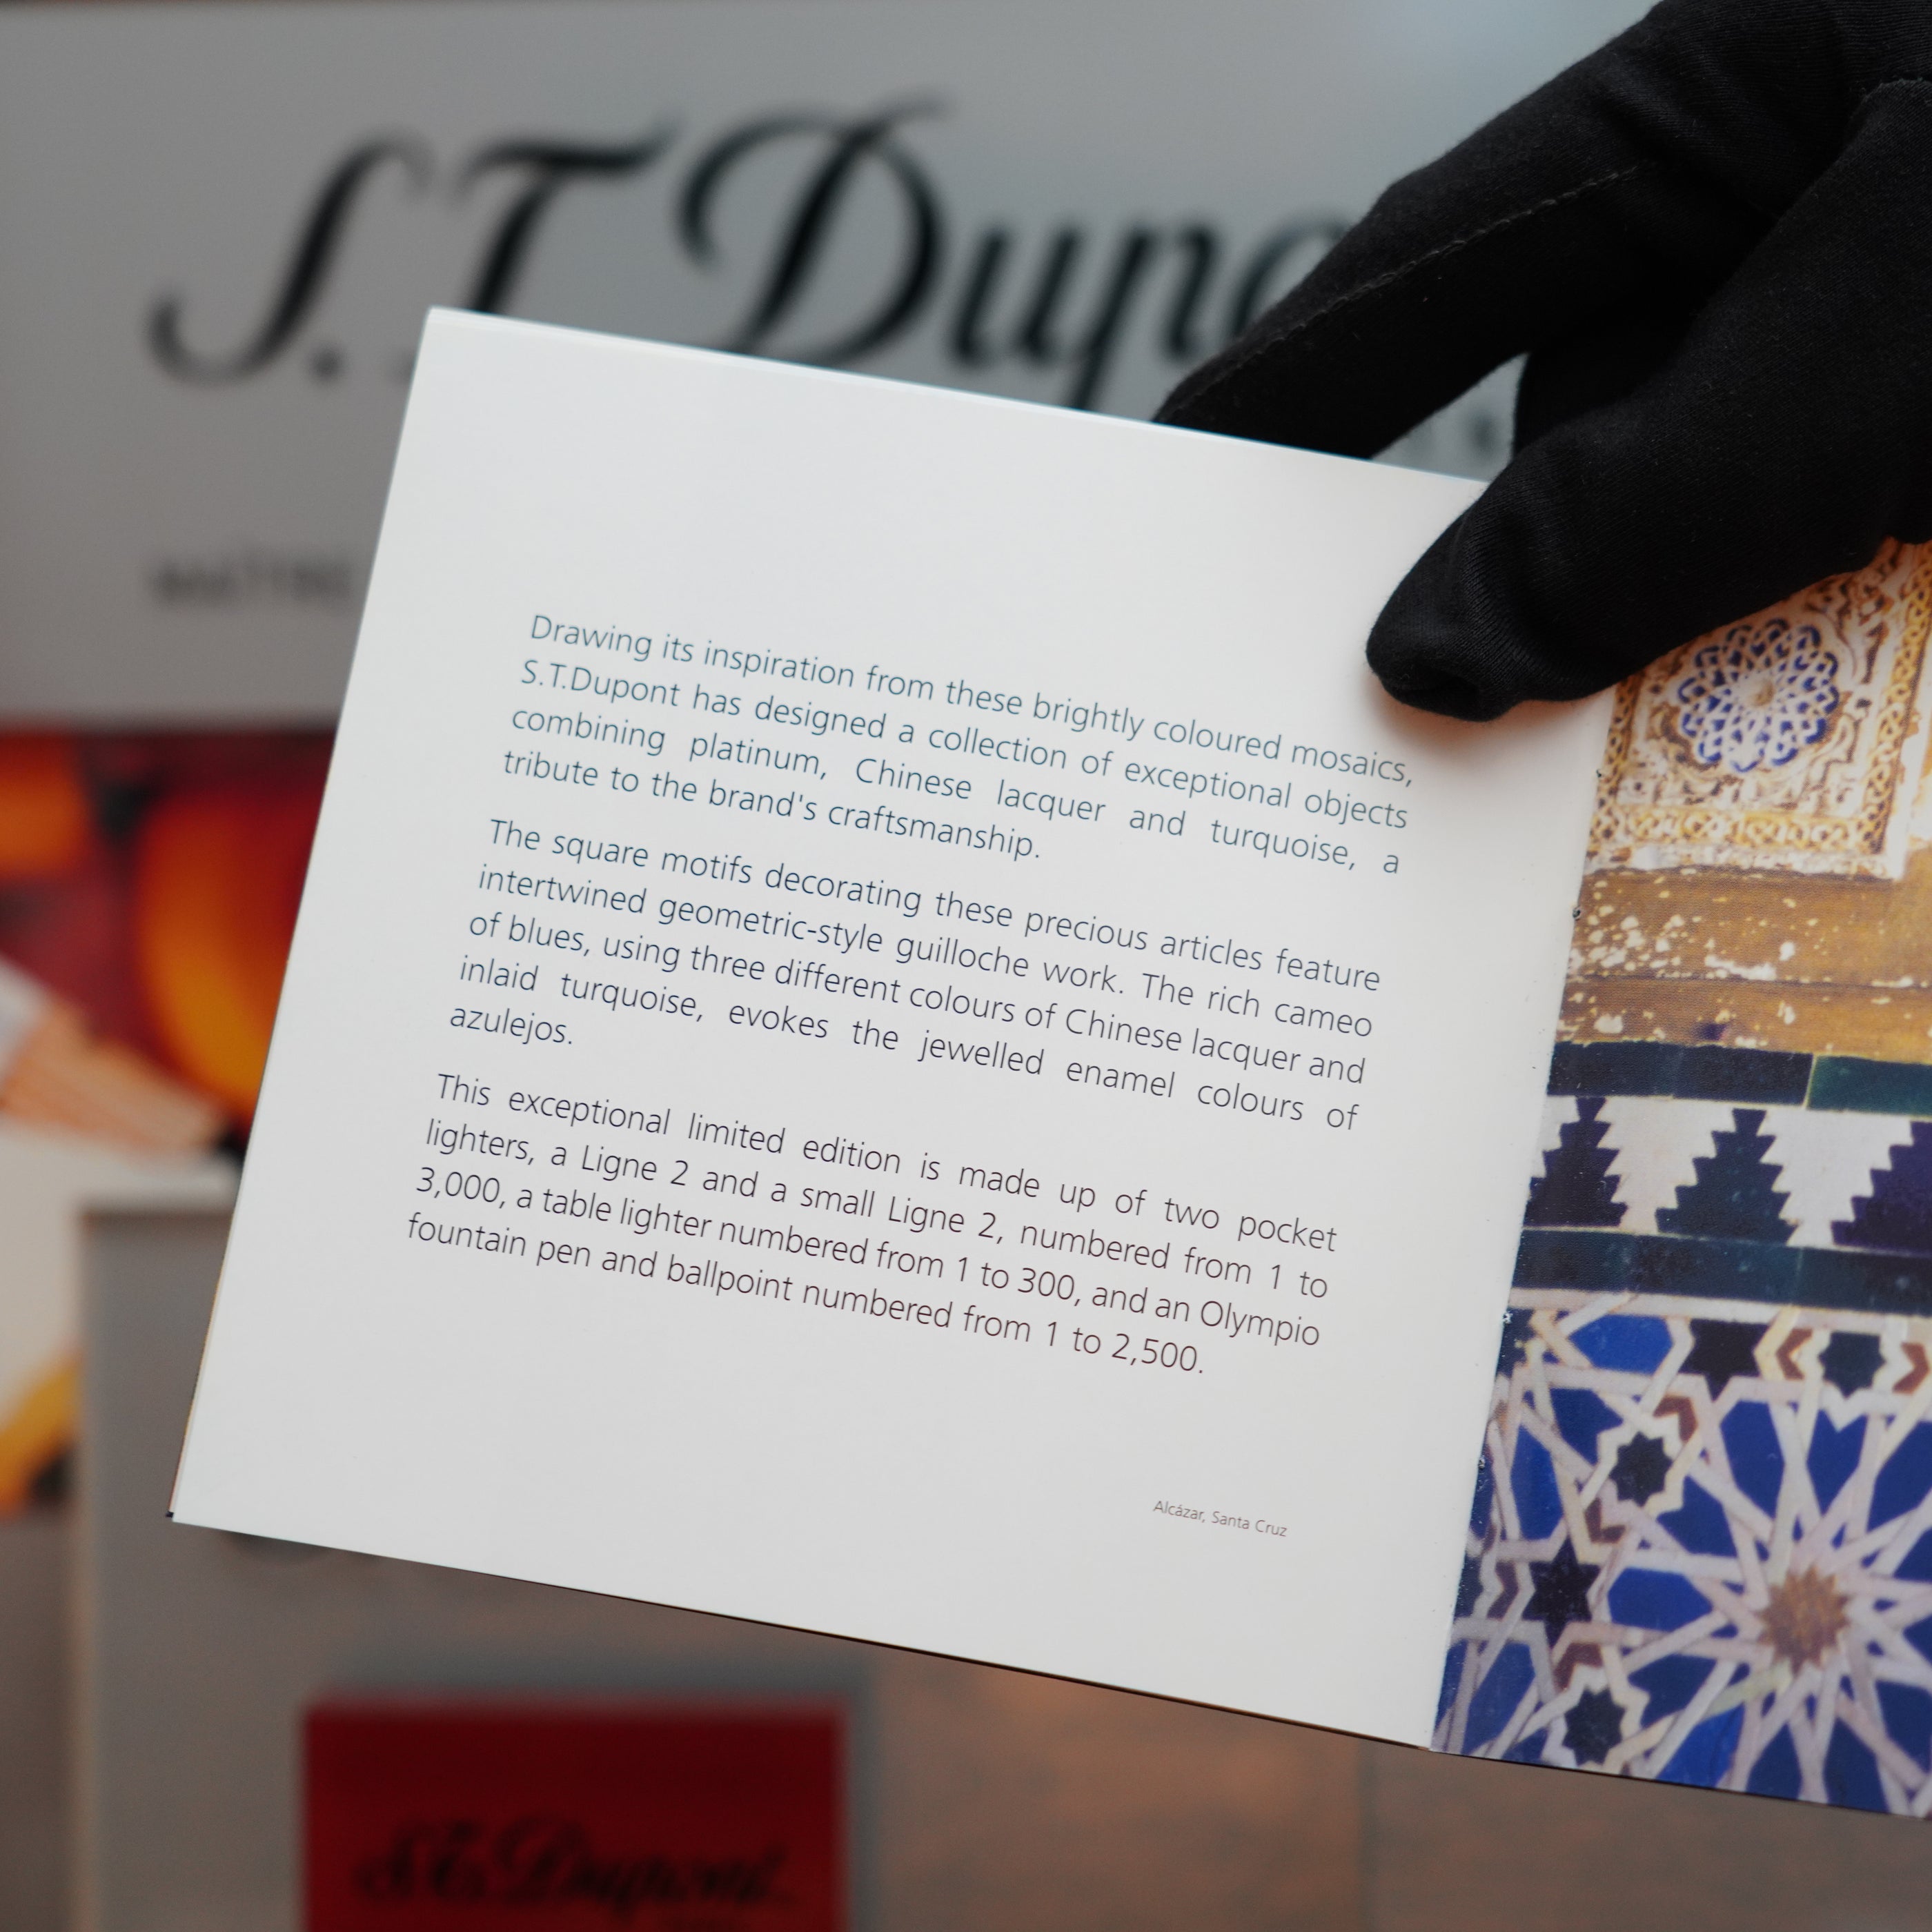 S.T. Dupo
MAÎTRE
Drawing its inspiration from these brightly coloured mosaics,
S.T.Dupont has designed a collection of exceptional objects
combining platinum, Chinese lacquer and turquoise, a
tribute to the brand's craftsmanship.
The square motifs decorating these precious articles feature
intertwined geometric-style guilloche work. The rich cameo
of blues, using three different colours of Chinese lacquer and
inlaid turquoise, evokes the jewelled enamel colours of
azulejos.
This exceptional limited edition is made up of two pocket
lighters, a Ligne 2 and a small Ligne 2, numbered from 1 to
3,000, a table lighter numbered from 1 to 300, and an Olympio
fountain pen and ballpoint numbered from 1 to 2,500.
Alcázar, Santa Cruz
S.T. Dupont